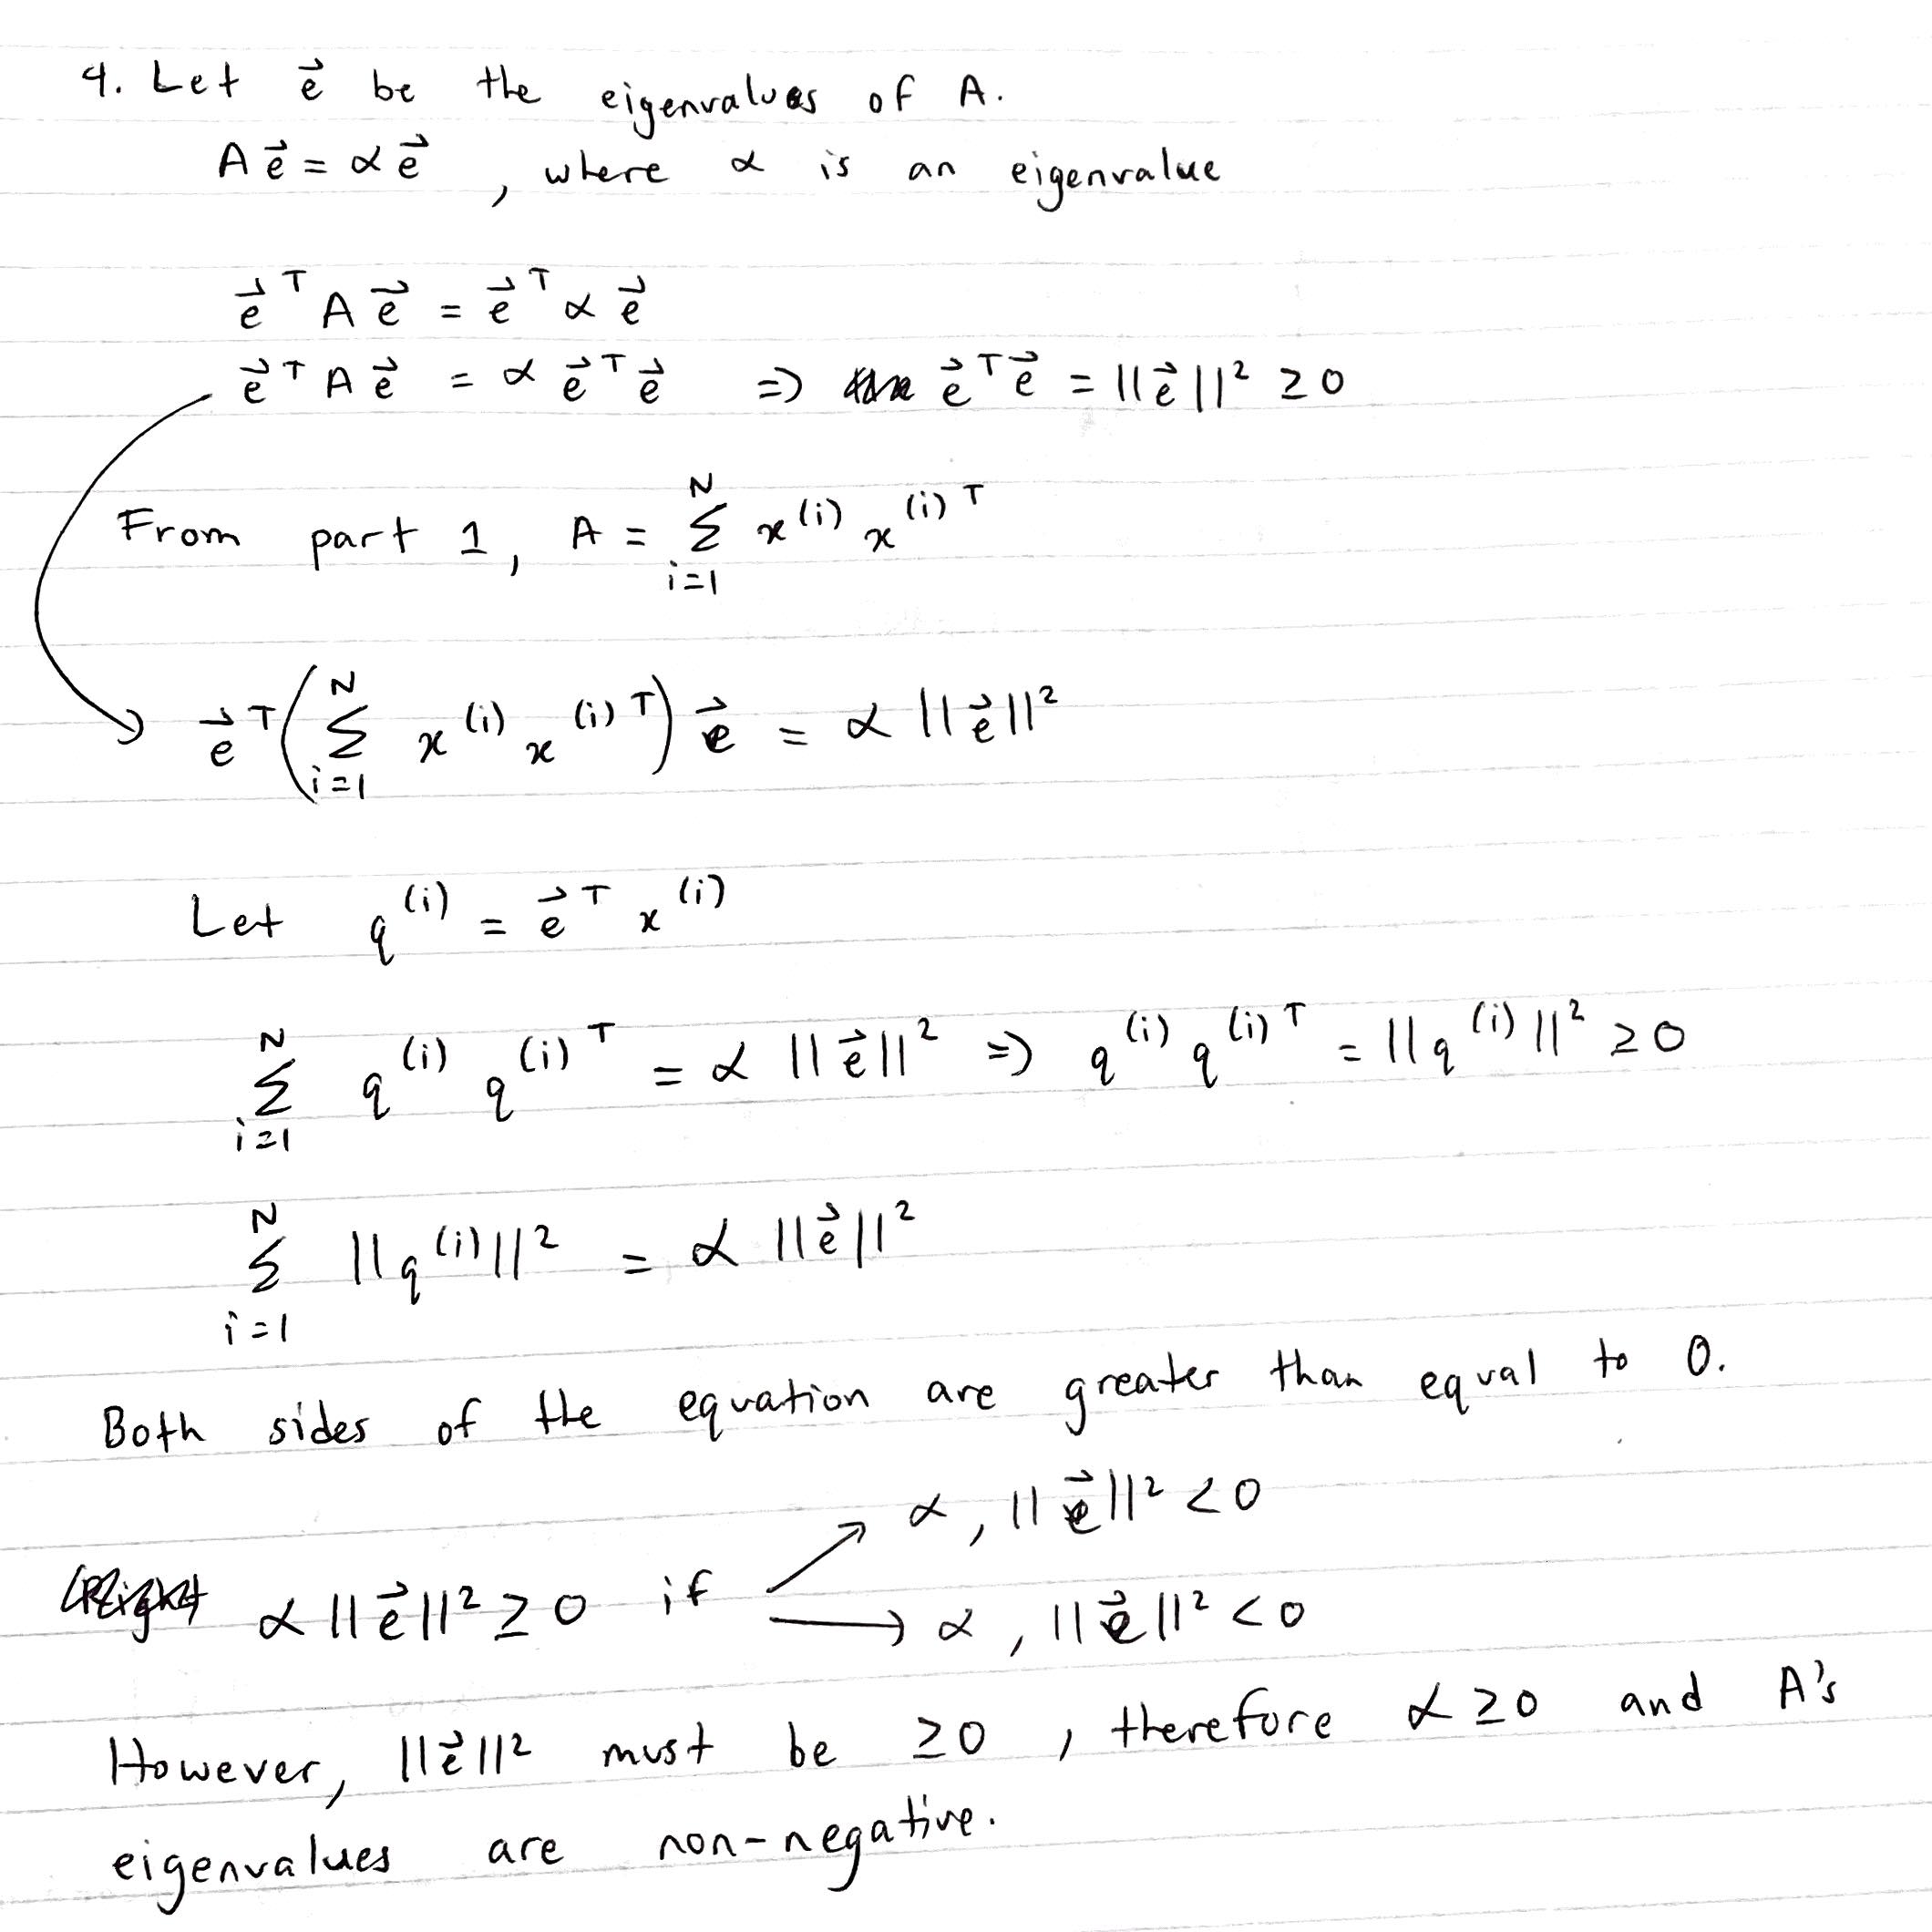 4. Let e⃗ be the eigenvalues of A.
A e⃗ = α e⃗ , where α is an eigenvalue
e⃗ᵀ A e⃗ = e⃗ᵀ α e⃗
e⃗ᵀ A e⃗ = α e⃗ᵀ e⃗ ⇒ e⃗ᵀ e⃗ = ||e⃗||² ≥ 0
From part 1, A = Σ_{i=1}^{N} x⁽ⁱ⁾ x⁽ⁱ⁾ᵀ
e⃗ᵀ ( Σ_{i=1}^{N} x⁽ⁱ⁾ x⁽ⁱ⁾ᵀ ) e⃗ = α ||e⃗||²
Let q⁽ⁱ⁾ = e⃗ᵀ x⁽ⁱ⁾
Σ_{i=1}^{N} q⁽ⁱ⁾ q⁽ⁱ⁾ᵀ = α ||e⃗||² ⇒ q⁽ⁱ⁾ q⁽ⁱ⁾ᵀ = ||q⁽ⁱ⁾||² ≥ 0
Σ_{i=1}^{N} ||q⁽ⁱ⁾||² = α ||e⃗||²
Both sides of the equation are greater than equal to 0.
α, ||e⃗||² < 0
α ||e⃗||² ≥ 0 if → α, ||e⃗||² < 0
However, ||e⃗||² must be ≥ 0 , therefore α ≥ 0 and A's
eigenvalues are non-negative.